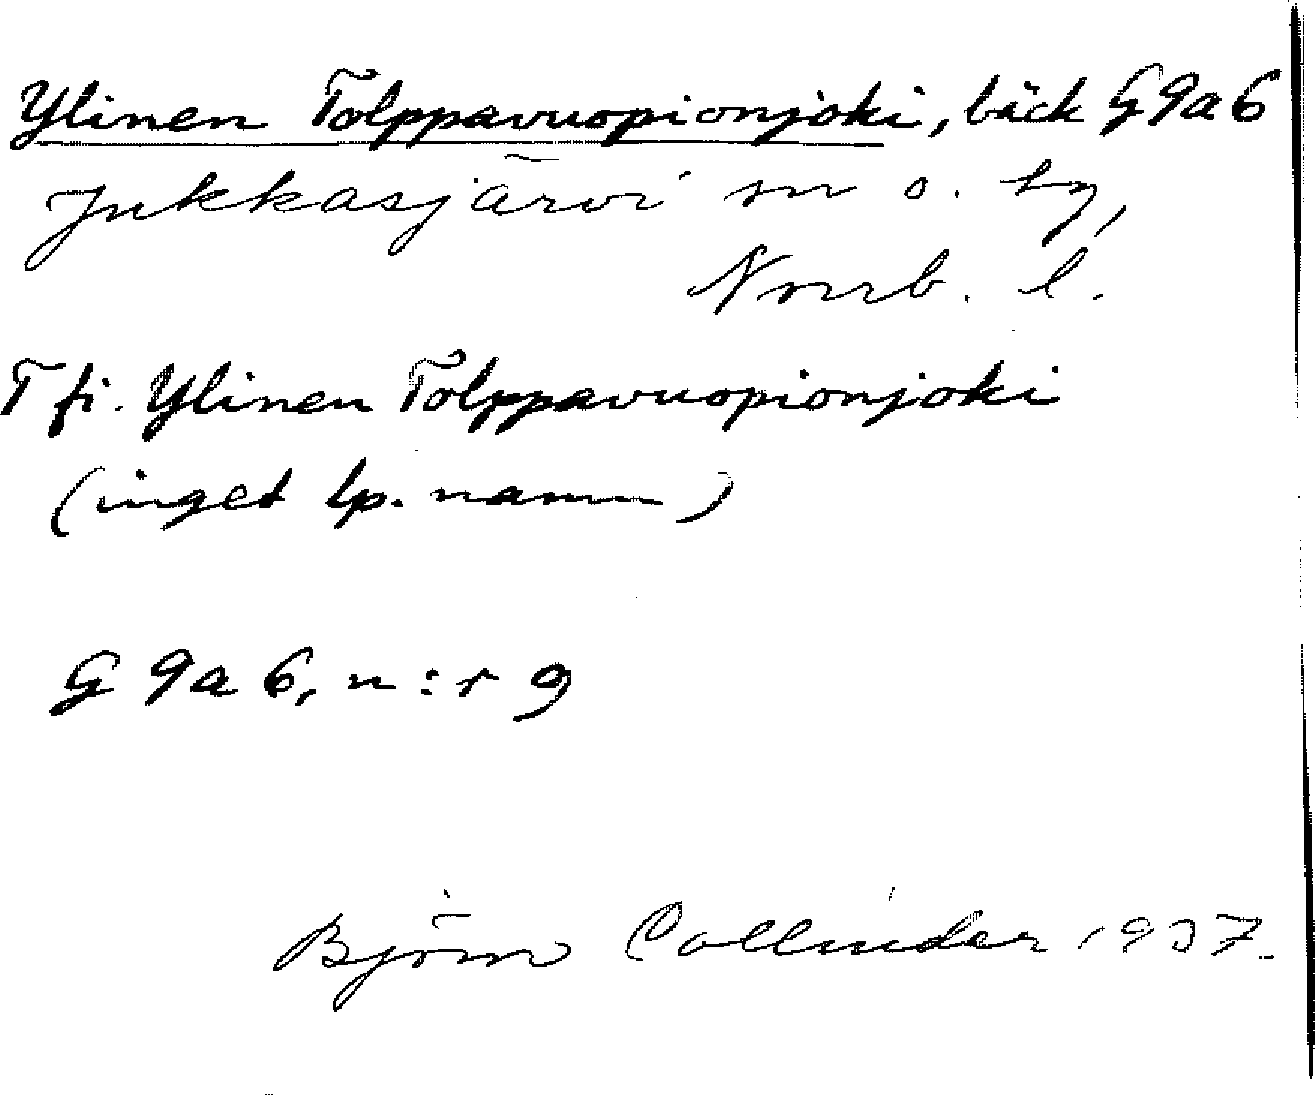 Ylinen Tolppavuopionjoki, bäck G9a6
Jukkasjärvi sn o. tg,
Norrb. l.
T fi. Ylinen Tolppavuopionjoki
(inget lp. namn)
G 9a 6, n:r 9
Björn Collinder 1937.